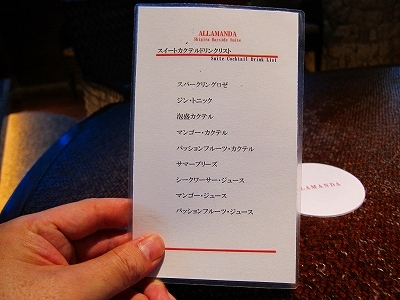 ALLAMANDA
Shigira Bayside Suite
スイートカクテルドリンクリスト
Suite Cocktail Drink List
スパークリングロゼ
ジン・トニック
泡盛カクテル
マンゴー・カクテル
パッションフルーツ・カクテル
サマーブリーズ
シークワーサー・ジュース
マンゴー・ジュース
パッションフルーツ・ジュース
LLAMANDA